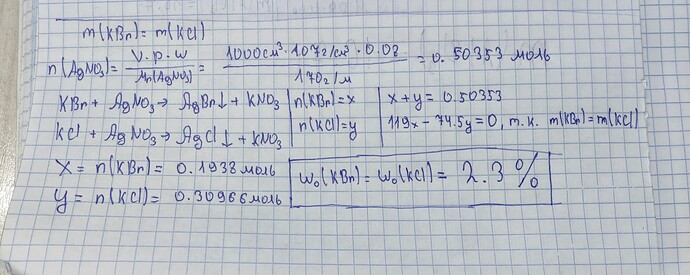 m(KBr) = m(KCl)
n(AgNO₃) = V·ρ·w / Mr(AgNO₃) = 1000 см³ · 1.07 г/см³ · 0.08 / 170 г/м = 0.50353 моль
KBr + AgNO₃ → AgBr↓ + KNO₃ | n(KBr) = x | x + y = 0.50353
KCl + AgNO₃ → AgCl↓ + KNO₃ | n(KCl) = y | 119x − 74.5y = 0, т.к. m(KBr) = m(KCl)
x = n(KBr) = 0.1938 моль
y = n(KCl) = 0.30966 моль
w₀(KBr) = w₀(KCl) = 2.3%